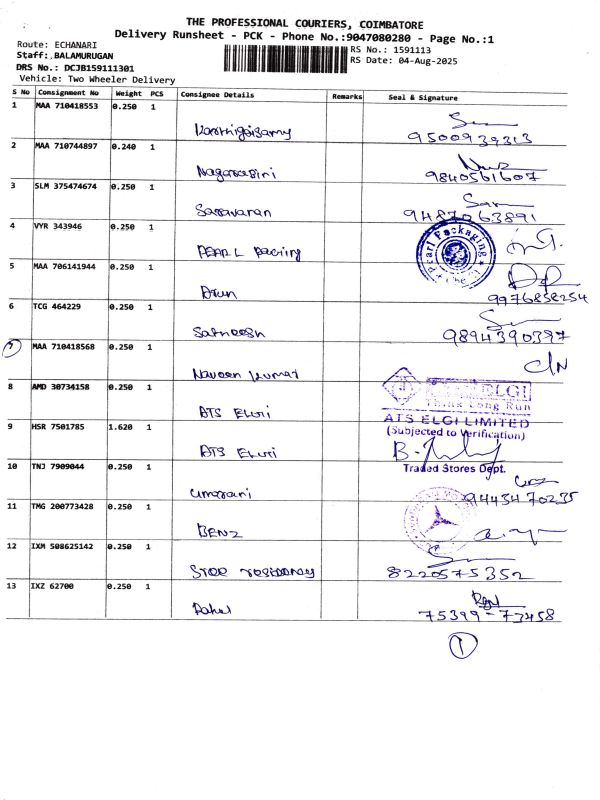 THE PROFESSIONAL COURIERS, COIMBATORE
Delivery Runsheet - PCK - Phone No.:9047080280 - Page No.:1
Route: ECHANARI
Staff: BALAMURUGAN
DRS No.: DCJB159111301
Vehicle: Two Wheeler Delivery
RS No.: 1591113
RS Date: 04-Aug-2025
S No Consignment No Weight PCS Consignee Details Remarks Seal & Signature
1 MAA 710418553 0.250 1
Karthigaisamy 9500939313
2 MAA 710744897 0.240 1
Nagarasini 9840561607
3 SLM 375474674 0.250 1
Saravanan 9487063891
4 VYR 343946 0.250 1
PEARL Packing Pearl Packaging
5 MAA 706141944 0.250 1
Arun 9976858254
6 TCG 464229 0.250 1
Satheesh 9894390397
7 MAA 710418568 0.250 1
Naveen Kumar C/N
8 AMD 30734158 0.250 1
ATS ELGI
ELGI
ATS ELGI LIMITED
(Subjected to Verification)
9 HSR 7501785 1.620 1
ATS ELGI
Traded Stores Dept.
10 TNJ 7909044 0.250 1
Umarani 9443470235
11 TMG 200773428 0.250 1
BENZ
12 IXM 508625142 0.250 1
residency 8220575352
13 IXZ 62700 0.250 1
Rahul 75399-73458
1